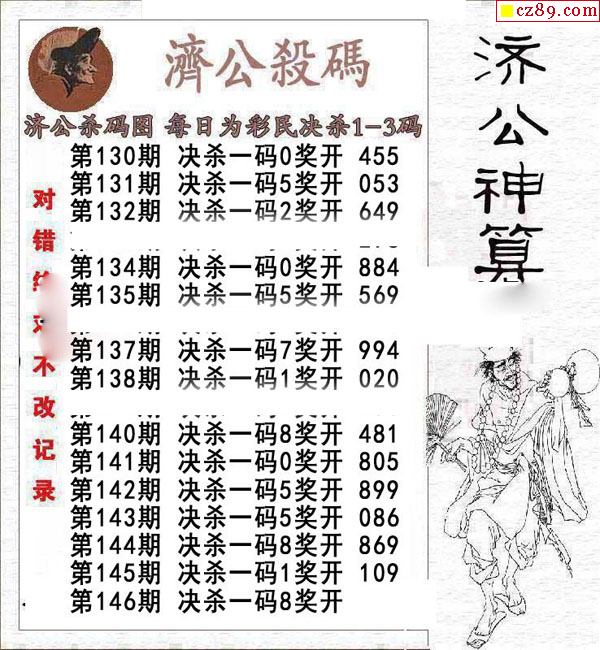 cz89.com
濟公殺碼
济公杀码图 每日为彩民决杀1-3码
第130期 决杀一码0奖开 455
第131期 决杀一码5奖开 053
第132期 决杀一码2奖开 649
第134期 决杀一码0奖开 884
第135期 决杀一码5奖开 569
第137期 决杀一码7奖开 994
第138期 决杀一码1奖开 020
第140期 决杀一码8奖开 481
第141期 决杀一码0奖开 805
第142期 决杀一码5奖开 899
第143期 决杀一码5奖开 086
第144期 决杀一码8奖开 869
第145期 决杀一码1奖开 109
第146期 决杀一码8奖开
对错不改记录
济公神算